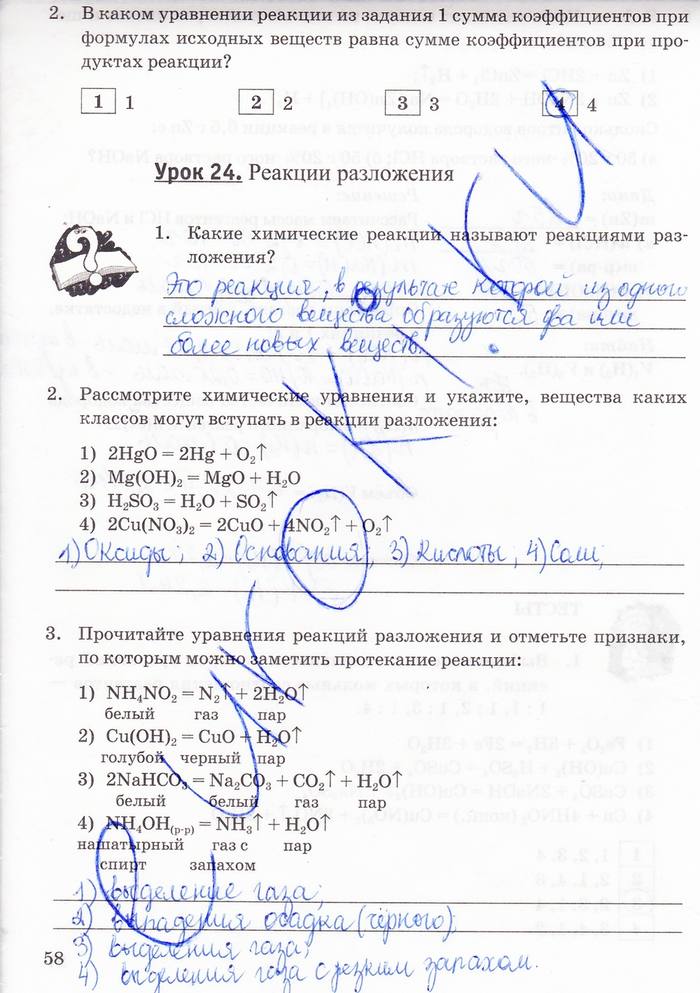 2. В каком уравнении реакции из задания 1 сумма коэффициентов при
формулах исходных веществ равна сумме коэффициентов при про-
дуктах реакции?
1 1 2 2 3 3 4 4
Урок 24. Реакции разложения
1. Какие химические реакции называют реакциями раз-
ложения?
Это реакция, в результате которой из одного
сложного вещества образуются два или
более новых веществ.
2. Рассмотрите химические уравнения и укажите, вещества каких
классов могут вступать в реакции разложения:
1) 2HgO = 2Hg + O₂↑
2) Mg(OH)₂ = MgO + H₂O
3) H₂SO₃ = H₂O + SO₂↑
4) 2Cu(NO₃)₂ = 2CuO + 4NO₂↑ + O₂↑
1) Оксиды; 2) Основания; 3) Кислоты; 4) Соли;
3. Прочитайте уравнения реакций разложения и отметьте признаки,
по которым можно заметить протекание реакции:
1) NH₄NO₂ = N₂↑ + 2H₂O↑
белый газ пар
2) Cu(OH)₂ = CuO + H₂O↑
голубой черный пар
3) 2NaHCO₃ = Na₂CO₃ + CO₂↑ + H₂O↑
белый белый газ пар
4) NH₄OH(р-р) = NH₃↑ + H₂O↑
нашатырный газ с пар
спирт запахом
1) выделение газа;
2) выпадения осадка (чёрного);
3) выделения газа;
58
4) выделения газа с резким запахом.